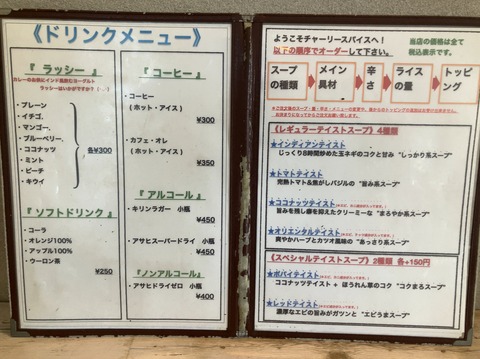 《ドリンクメニュー》
『 ラッシー 』
・プレーン
・イチゴ.
・マンゴー.
・ブルーベリー.
・ココナッツ
・ミント
・ピーチ
・キウイ
各¥300
『 ソフトドリンク 』
・コーラ
・オレンジ100%
・アップル100%
・ウーロン茶
¥250
『 コーヒー 』
・コーヒー
( ホット・アイス )
¥300
・カフェ・オレ
( ホット・アイス )
¥350
『 アルコール 』
・キリンラガー 小瓶
¥450
・アサヒスーパードライ 小瓶
¥450
『ノンアルコール』
・アサヒドライゼロ 小瓶
¥400
ようこそチャーリースパイスへ！
以下の順序でオーダーして下さい。
当店の価格は全て
税込表示です。
スープの種類
メイン具材
辛さ
ライスの量
トッピング
《レギュラーテイストスープ》4種類
★インディアンテイスト
じっくり8時間炒めた玉ネギのコクと旨み "しっかり系スープ"
★トマトテイスト
完熟トマト&焦がしバジルの "旨み系スープ"
★ココナッツテイスト
旨みを残し癖を抑えたクリーミーな "まろやか系スープ"
★オリエンタルテイスト
爽やかハーブとカツオ風味の "あっさり系スープ"
《スペシャルテイストスープ》2種類 各+150円
★ポパイテイスト
ココナッツテイスト + ほうれん草のコク "コクまろスープ"
★レッドテイスト
濃厚なエビの旨みがガツンと "エビうまスープ"